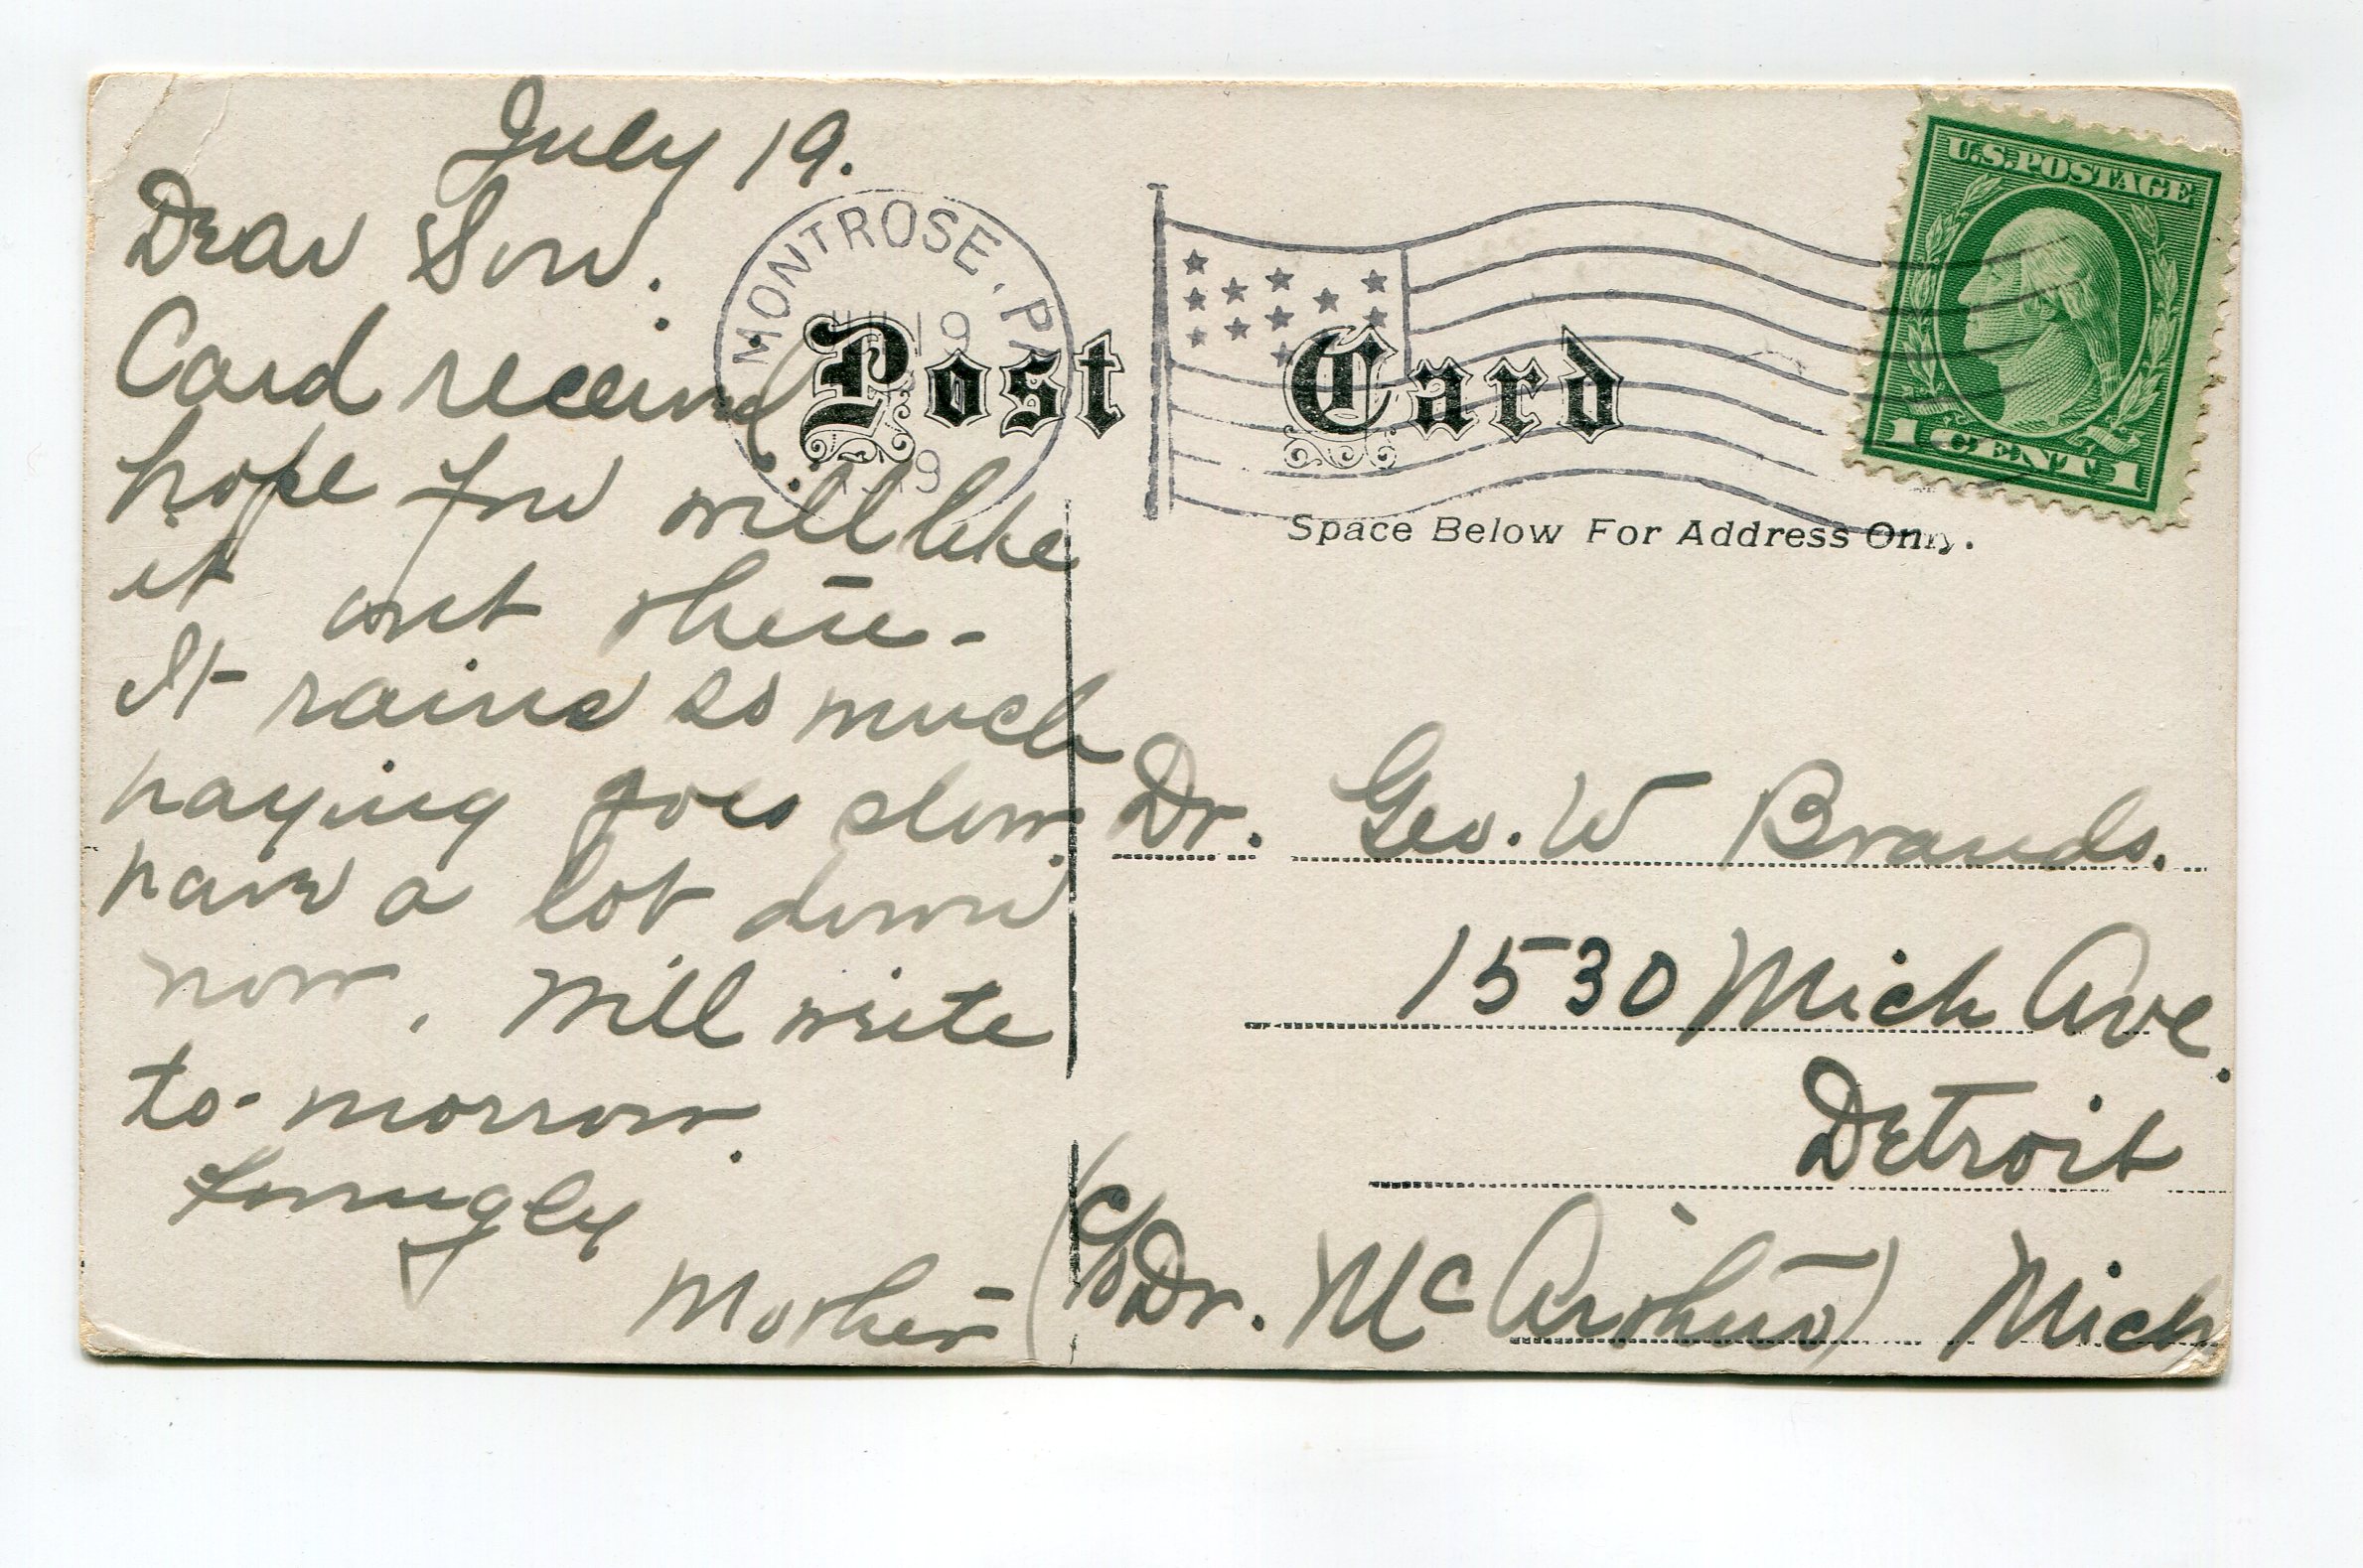 July 19.
Dear Son.
Card received
hope you will like
it out there -
It rains so much
haying goes slow.
have a lot down
now. Will write
to-morrow.
Lovingly
Mother
MONTROSE, PA
JUL 19
1919
Post Card
U.S. POSTAGE
1 CENT 1
Space Below For Address Only.
Dr. Geo. W Brands.
1530 Mich Ave.
Detroit
(c/o Dr. McArthur) Mich